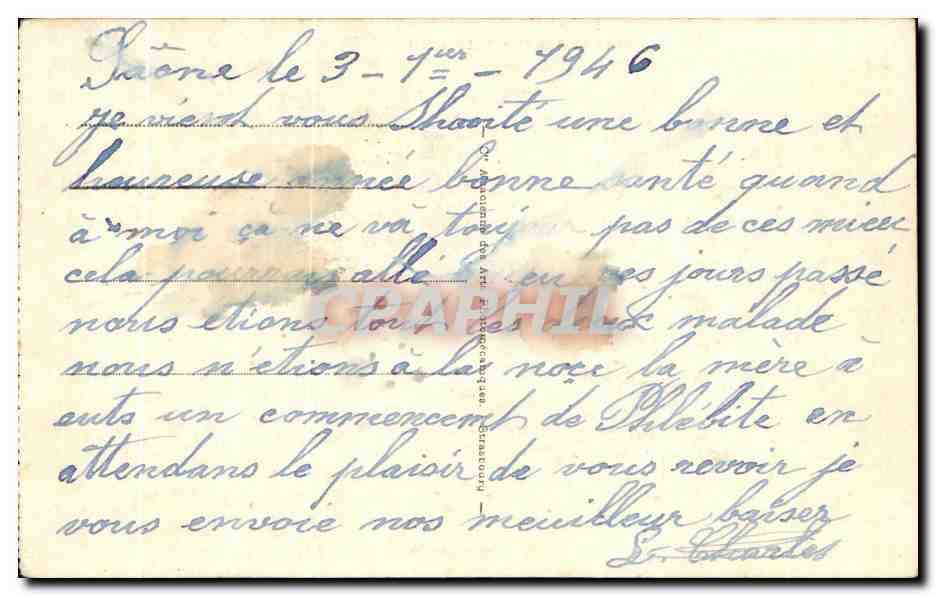 Saône le 3 - 1er - 1946
je vient vous Shoité une bonne et
heureuse année bonne santé quand
à moi ça ne và toujour pas de ces mieu
cela pourrais allé ces jours passé
nous etions tout les deux malade
nous n'étions à la noce la mère à
euts un commencement de Phlébite en
attendans le plaisir de vous revoir je
vous envoie nos meuilleur baiser
Charles
Cie Alsacienne des Arts Photomécaniques, Strasbourg
CPAPHIL